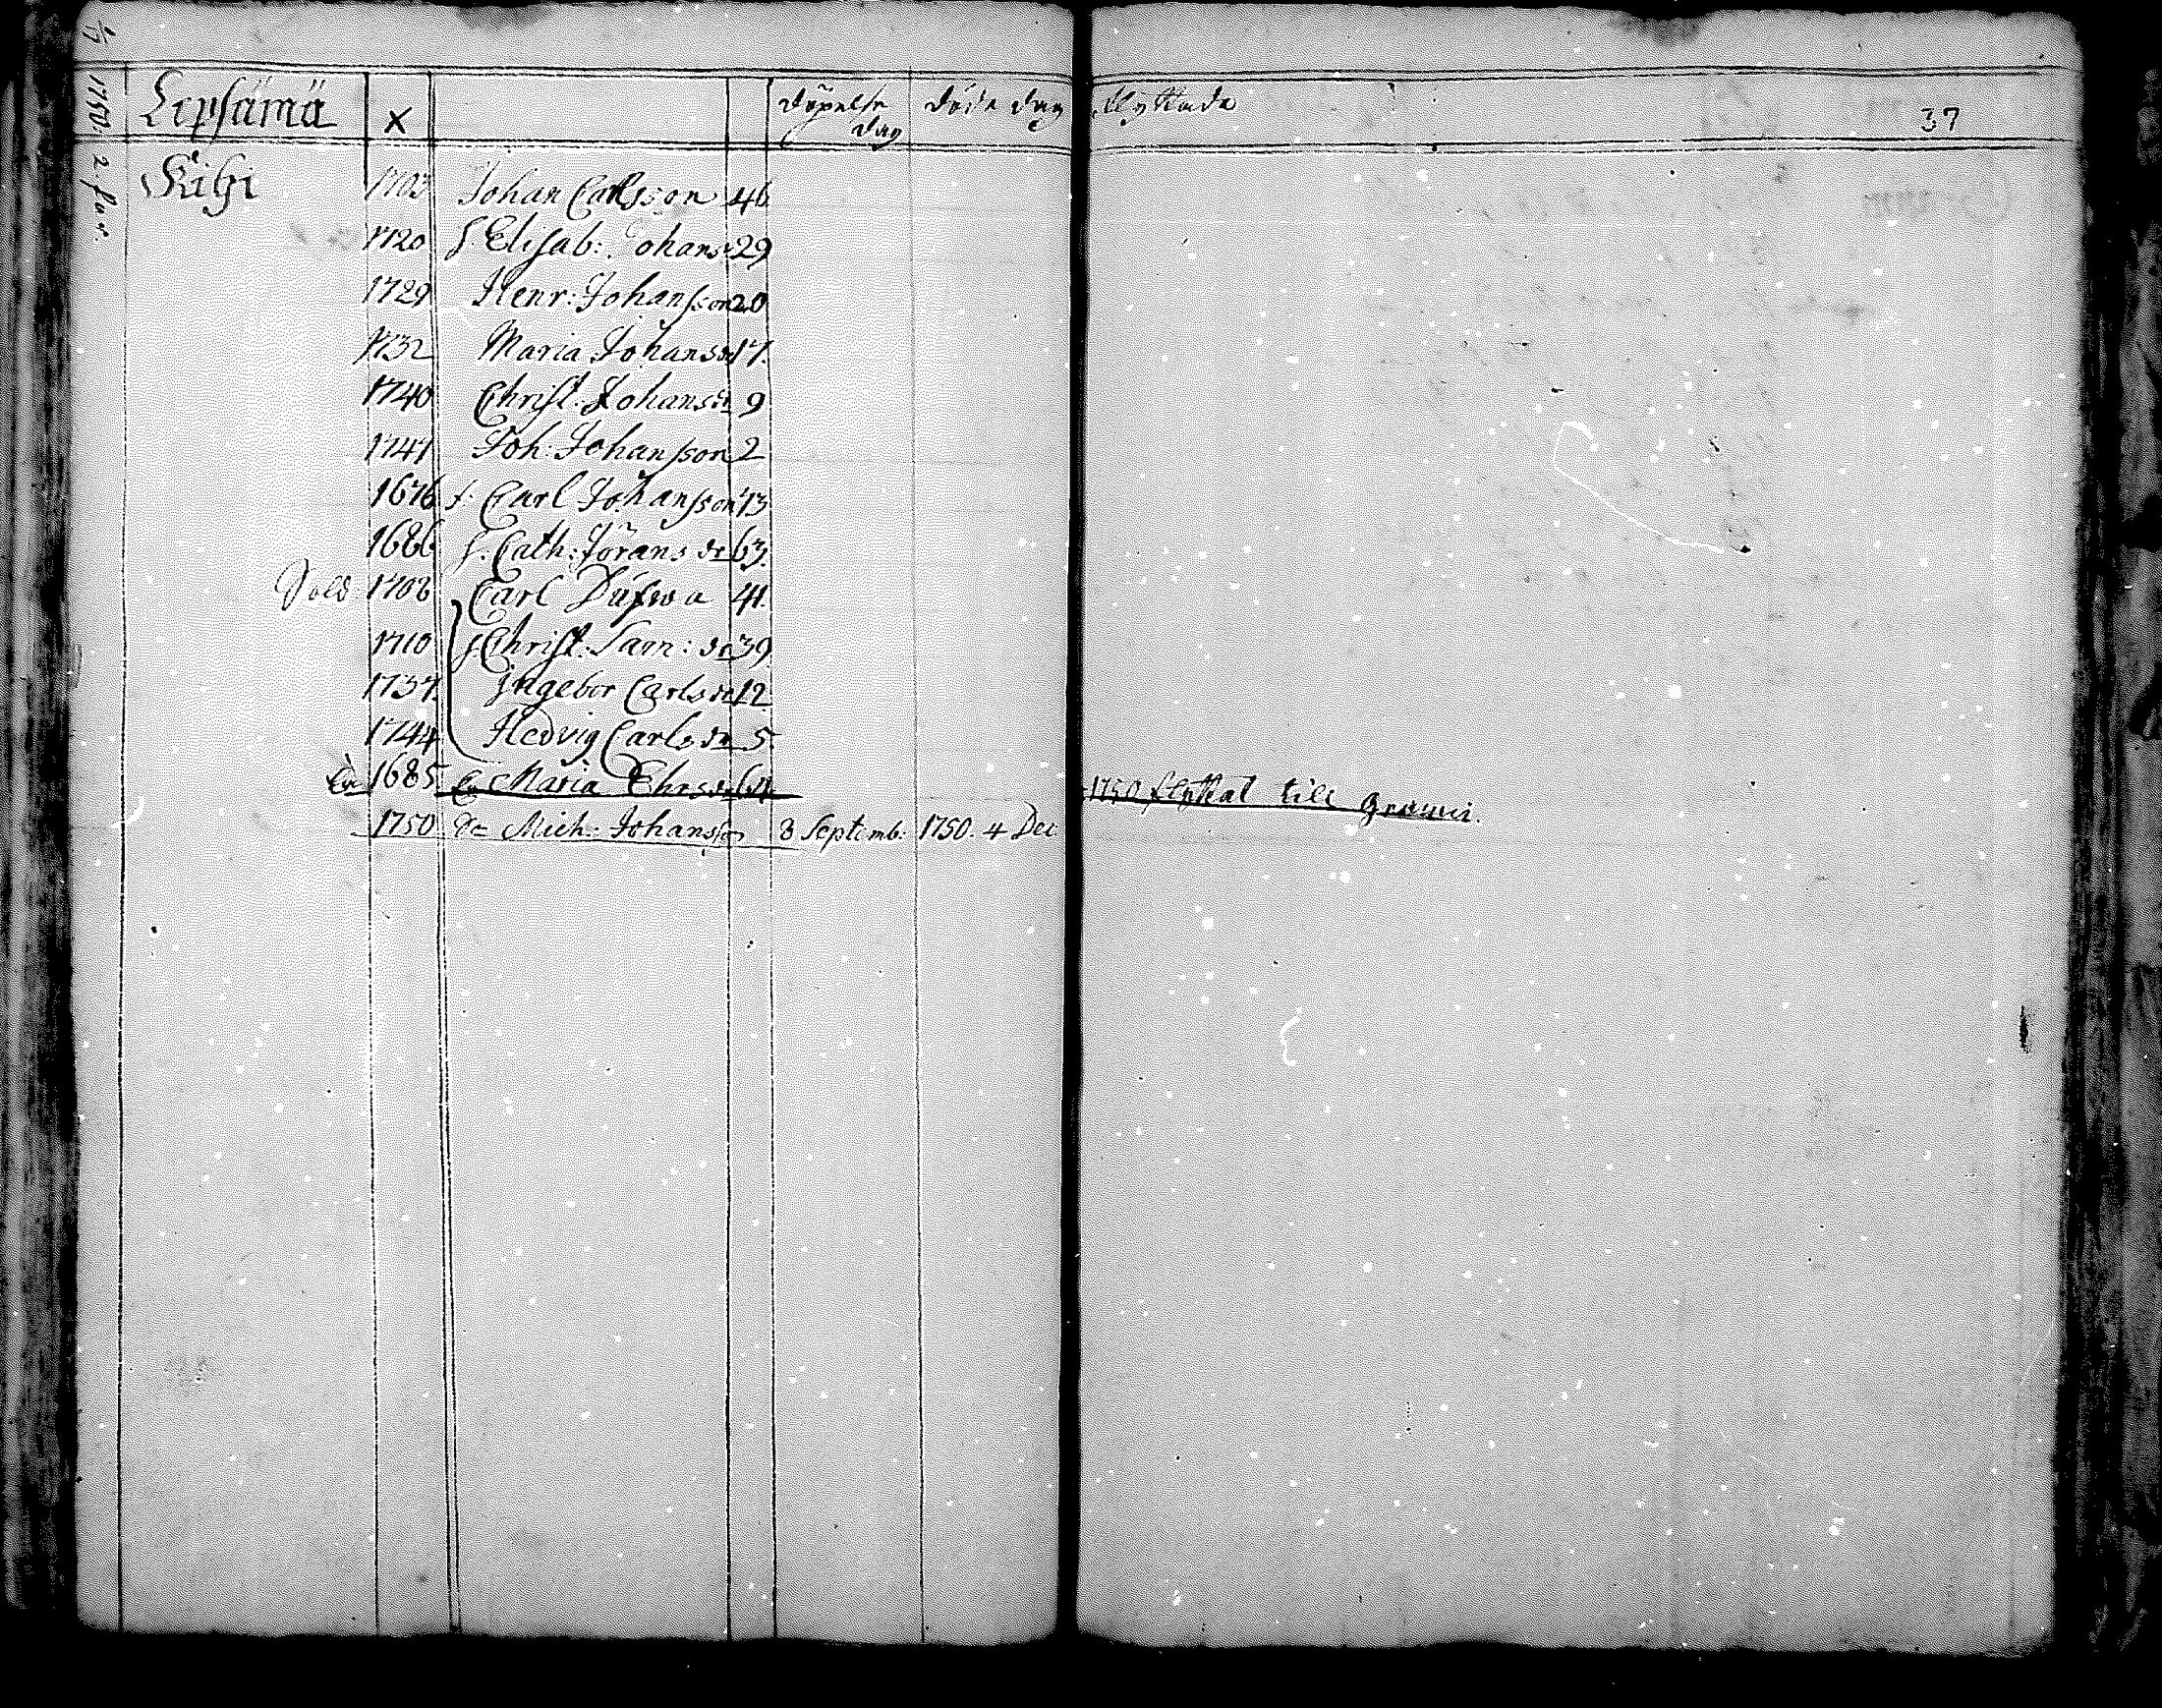 1750. 2 par.
Lepsämä X döpelse dag döde dag flyttade 37
Kihi 1703 Johan Carlsson 46
1720 h. Elisab: Johans dr 29
1729 Henr: Johansson 20
1732 Maria Johans dr 17.
1740 Christ. Johans dr 9
1747 Joh: Johansson 2
1676 f. Carl Johansson 73
1686 h. Cath: Jörans dr 63.
Sold 1708 Carl Dufwa 41.
1710 h. Christ. Sam: dr 39
1737. Ingebor Carls dr 12
1744 Hedvig Carls dr 5.
Enk 1685 Maria Ehrs dr 64 1750 flyttat till
1750 Mich: Johansson 8 Septemb: 1750. 4 Dec